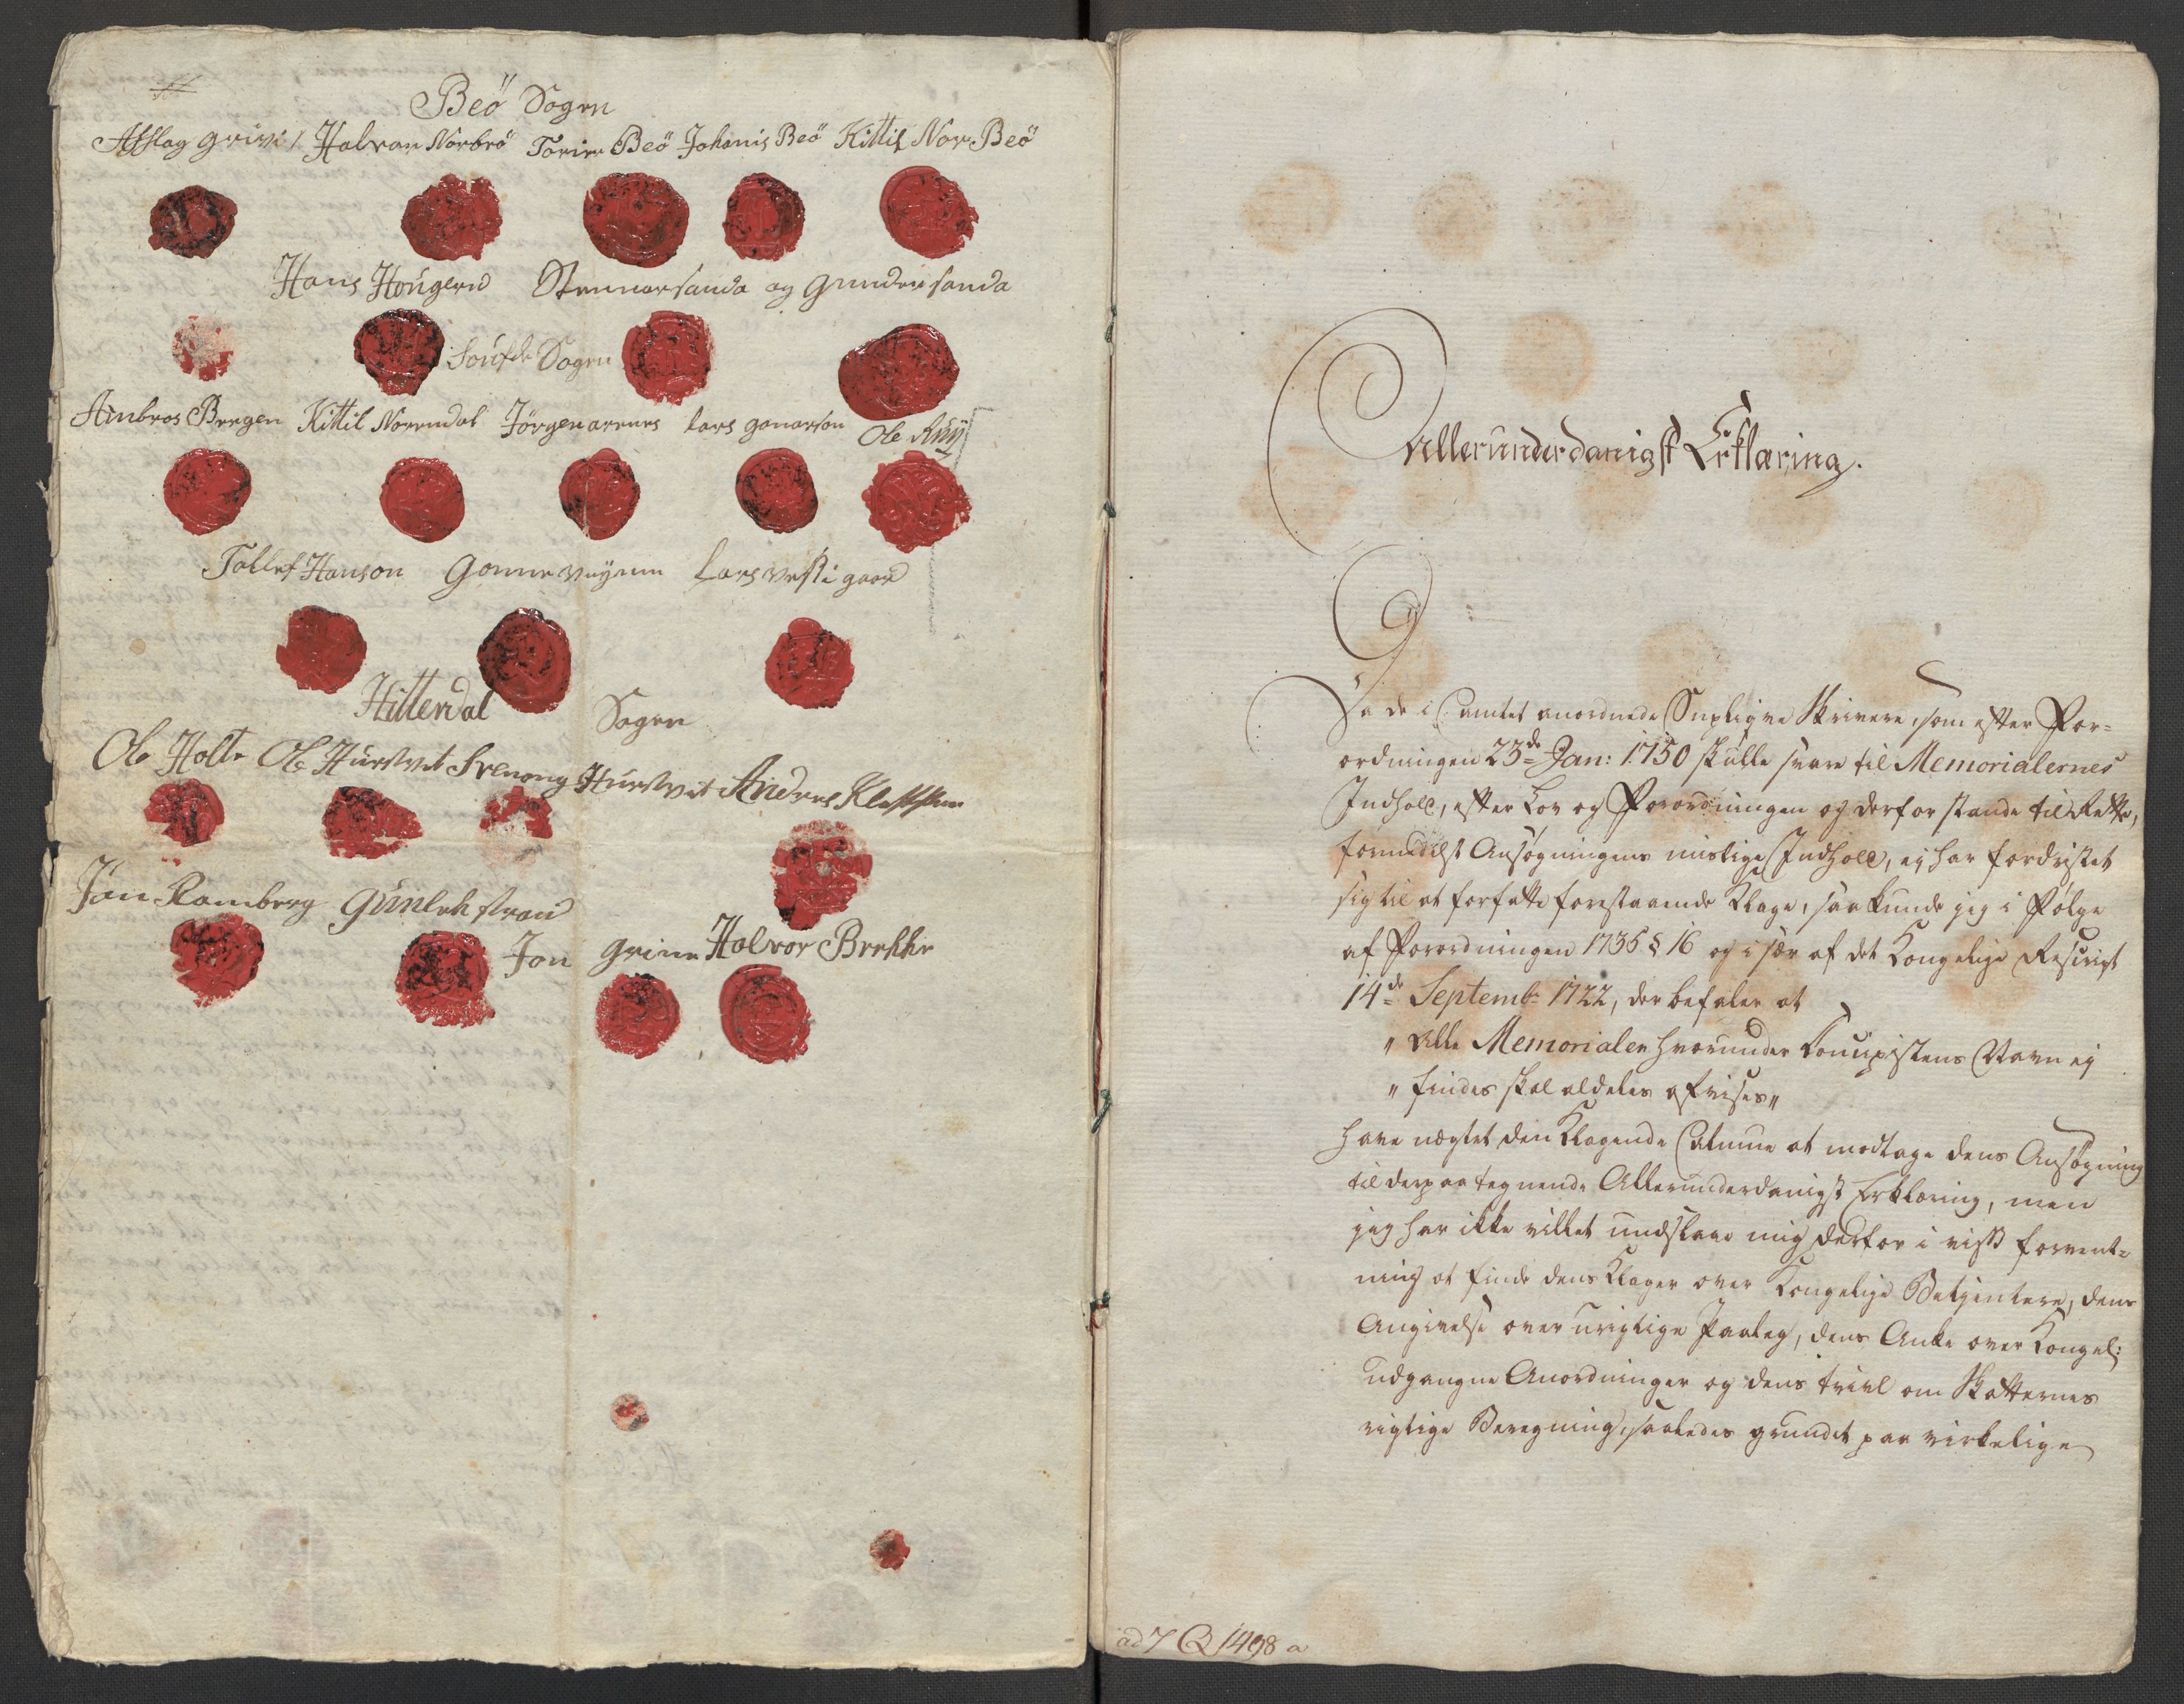 Beö Sogen
Afslag grivi / Halvar Norbrö Torier Beö Johanis Beö Kittil Nor Beö
Hans Hougend Stennarsanda og gunder sanda
Soufde Sogen
Ambros Bergen Kittil Norendal Jörgen arenes lars gonarson Ole Ruÿ
Tollef Hanson Gonne vuÿenn Lars vesti gaard
Hitterdal Sogen
Ole Holte Ole Hurdvet Svenong Hurdvet Andres Klokker
Jan Ramberg gunlek strand
Jon grinne Halvor Brekke
Allerunderdanigst Erklæring.
Da de i Amtet anordnede Suplique Skrivere, som efter For-
ordningen 23de Jan: 1750 skulle svare til Memorialernes
Indhold, efter Lov og Forordningen og derfor stande til Rette,
formedelst Ansøgningens mislige Indhold, ej har fordristet
sig til at forfatte forestaaende Klage, saa kunde jeg i Følge
af Forordningen 1735 § 16 og i sær af det Kongelige Rescript
14de Septemb: 1722, der befaler at
„ Alle Memorialer hvorunder Concipistens Navn ej
„ findes skal aldeles afvises „
have negtet den Klagende Almue at modtage dens Ansøgning
til derpaa tegnende Allerunderdanigst Erklæring, men
jeg har ikke villet undslaae mig derfor i vist forvent-
ning at finde dens Klager over Kongelige Betjentere, dens
Angivelse over urigtige Paalæg, dens Anke over Kongel:
udgangne Anordninger og dens tvivl om Skatternes
rigtige Beregning, saaledes grundet paa virkelige
ad 7 Q 1498 a